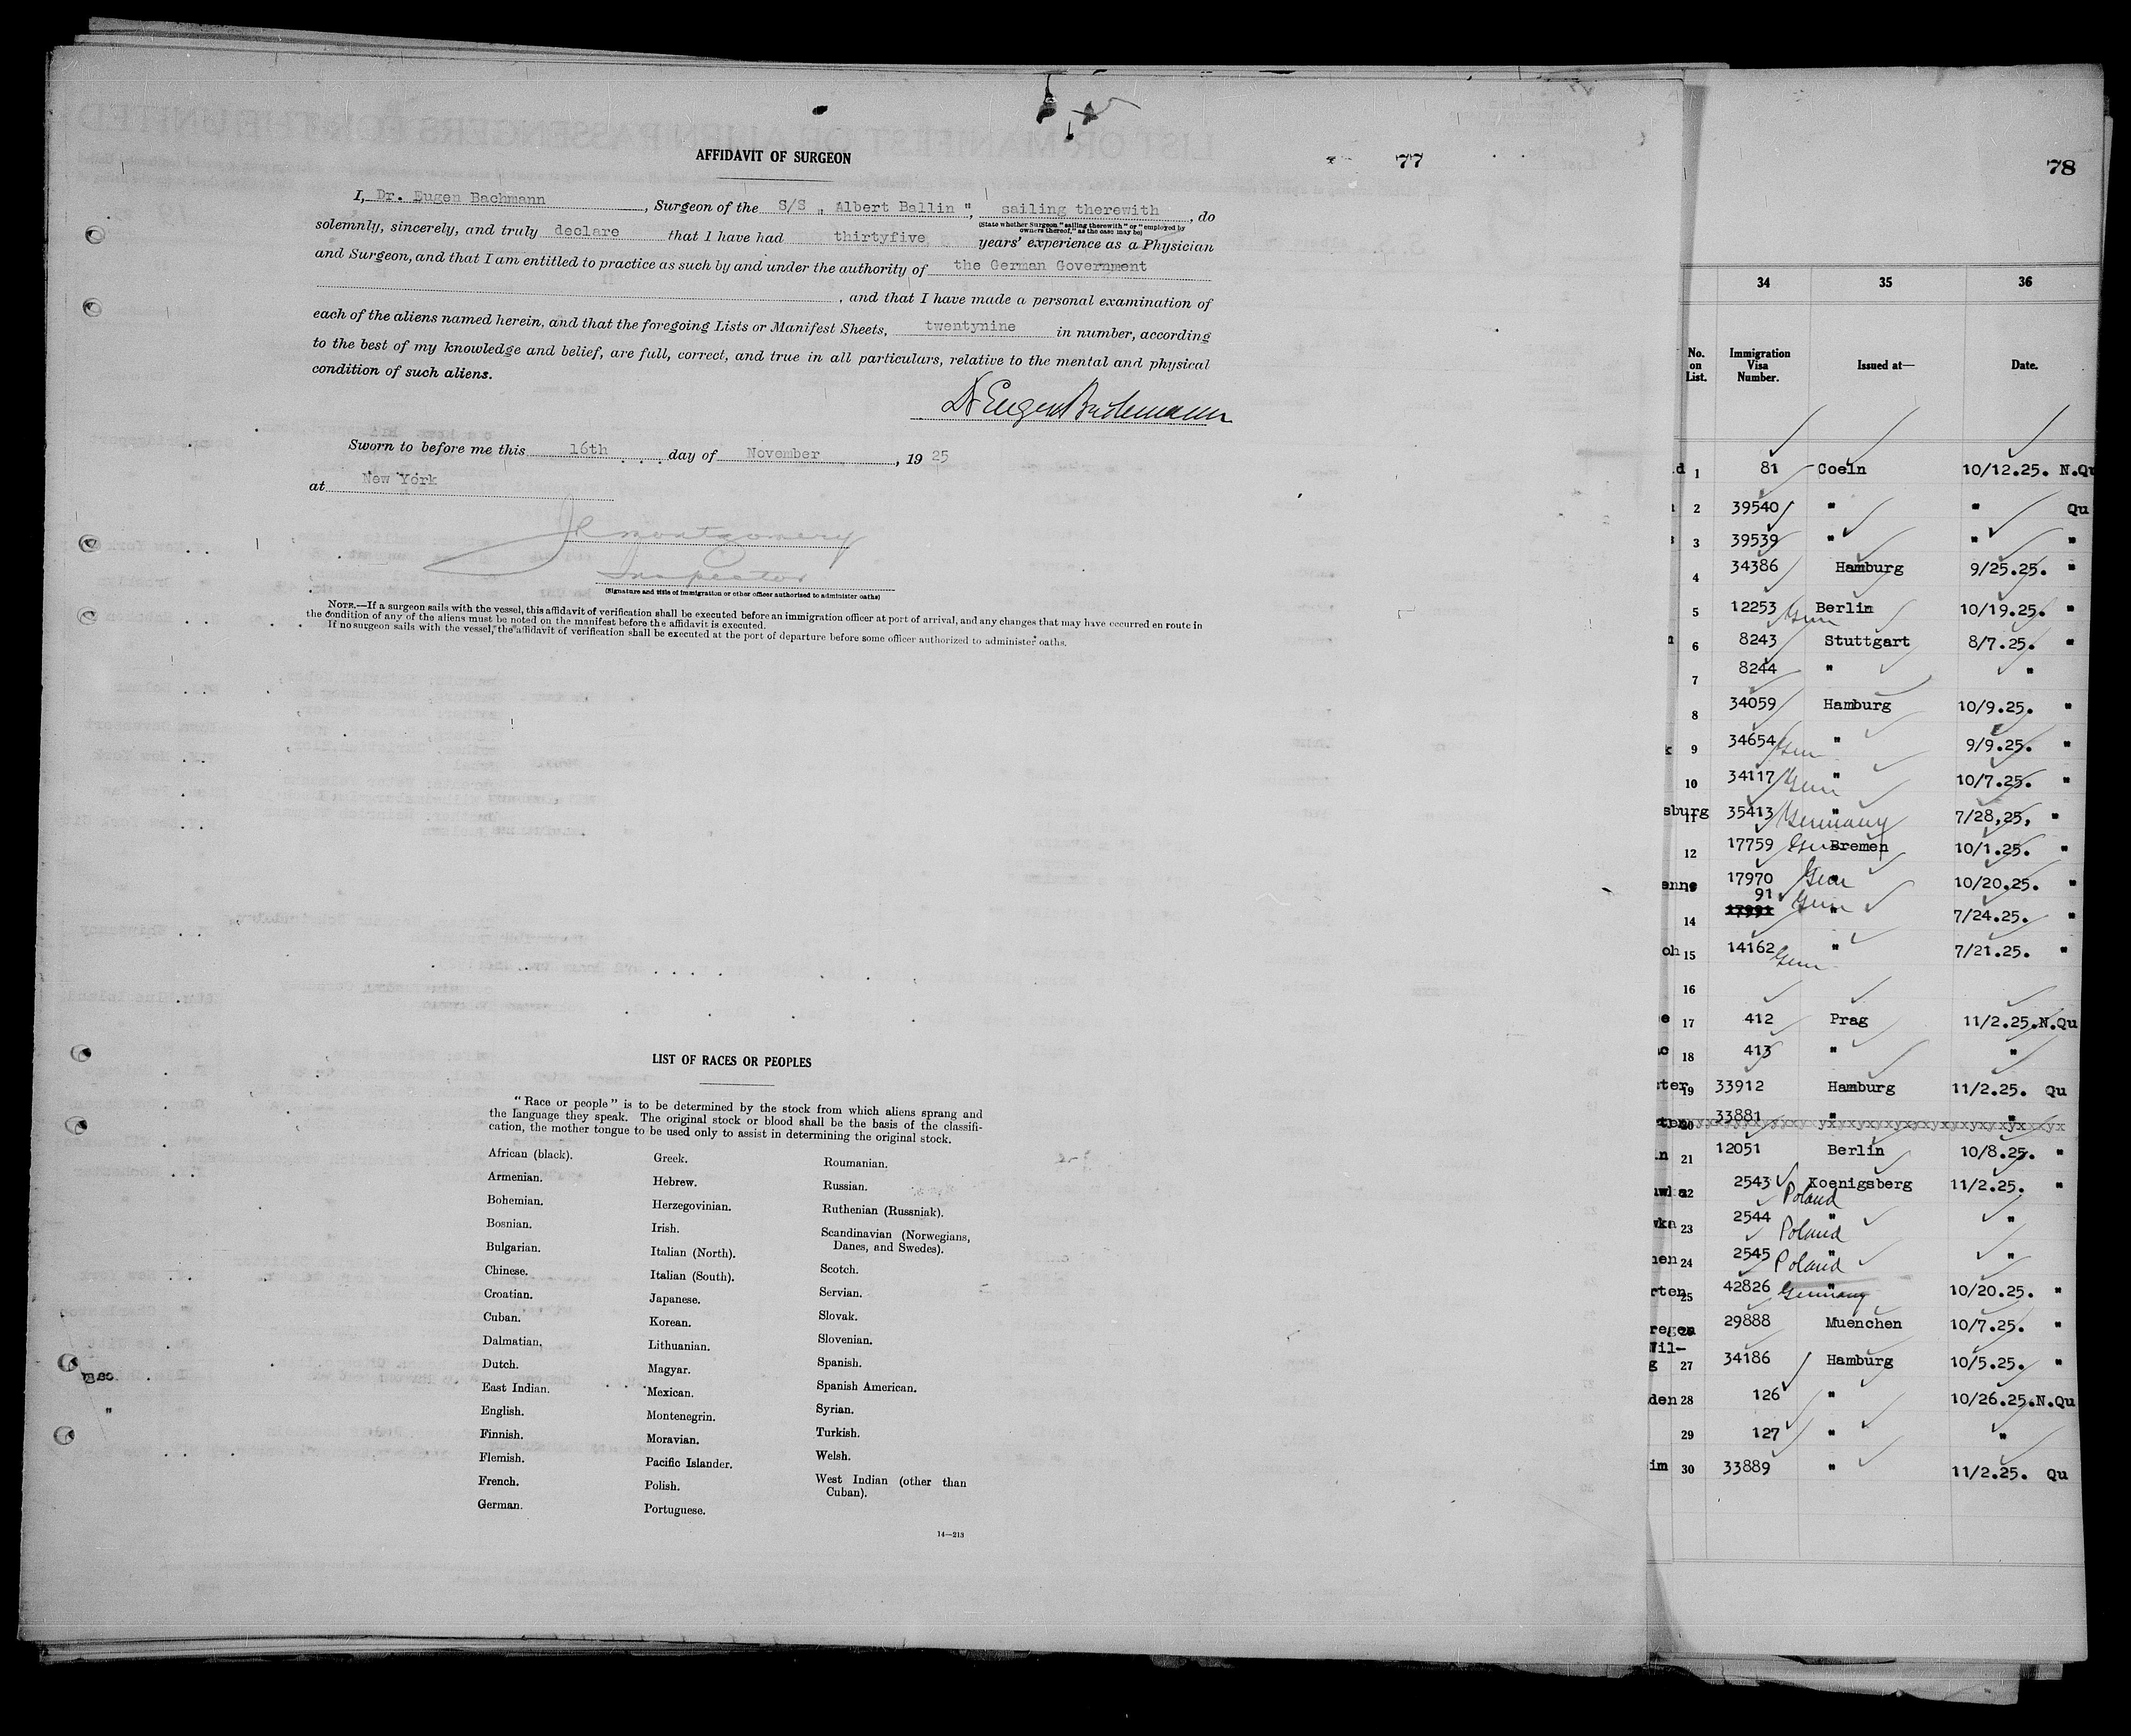 AFFIDAVIT OF SURGEON
77
I, Dr. Eugen Bachmann, Surgeon of the S/S „ Albert Ballin ", sailing therewith, do
(State whether Surgeon "sailing therewith" or "employed by
owners thereof," as the case may be)
solemnly, sincerely, and truly declare that I have had thirtyfive years' experience as a Physician
and Surgeon, and that I am entitled to practice as such by and under the authority of the German Government
, and that I have made a personal examination of
each of the aliens named herein, and that the foregoing Lists or Manifest Sheets, twentynine in number, according
to the best of my knowledge and belief, are full, correct, and true in all particulars, relative to the mental and physical
condition of such aliens.
Dr Eugen Bachmann
Sworn to before me this 16th day of November, 1925
at New York
Montgomery
Inspector
(Signature and title of immigration or other officer authorized to administer oaths)
NOTE.—If a surgeon sails with the vessel, this affidavit of verification shall be executed before an immigration officer at port of arrival, and any changes that may have occurred en route in
the condition of any of the aliens must be noted on the manifest before the affidavit is executed.
If no surgeon sails with the vessel, the affidavit of verification shall be executed at the port of departure before some officer authorized to administer oaths.
LIST OF RACES OR PEOPLES
"Race or people" is to be determined by the stock from which aliens sprang and
the language they speak. The original stock or blood shall be the basis of the classifi-
cation, the mother tongue to be used only to assist in determining the original stock.
African (black).
Armenian.
Bohemian.
Bosnian.
Bulgarian.
Chinese.
Croatian.
Cuban.
Dalmatian.
Dutch.
East Indian.
English.
Finnish.
Flemish.
French.
German.
Greek.
Hebrew.
Herzegovinian.
Irish.
Italian (North).
Italian (South).
Japanese.
Korean.
Lithuanian.
Magyar.
Mexican.
Montenegrin.
Moravian.
Pacific Islander.
Polish.
Portuguese.
Roumanian.
Russian.
Ruthenian (Russniak).
Scandinavian (Norwegians,
Danes, and Swedes).
Scotch.
Servian.
Slovak.
Slovenian.
Spanish.
Spanish American.
Syrian.
Turkish.
Welsh.
West Indian (other than
Cuban).
14—213
78
34 35 36
No. on List. Immigration Visa Number. Issued at— Date.
1 81 Coeln 10/12.25. N.Qu
2 39540 " " Qu
3 39539 " " "
4 34386 Hamburg 9/25.25. "
5 12253 Ger Berlin 10/19.25. "
6 8243 Stuttgart 8/7.25. "
7 8244 " "
8 34059 Hamburg 10/9.25. "
9 34654 Ger " 9/9.25. "
10 34117 Ger " 10/7.25. "
sburg 11 35413 Germany " 7/28,25, "
12 17759 Ger Bremen 10/1.25. "
enne 17970 Ger " 10/20.25. "
91
14 17991 Ger " 7/24.25. "
oh 15 14162 Ger " 7/21.25. "
16
e 17 412 Prag 11/2.25.N.Qu
18 413 " "
ster 19 33912 Hamburg 11/2.25. Qu
20 33881 " "
n 21 12051 Berlin 10/8.25. "
22 2543 Poland Koenigsberg 11/2.25. "
wka 23 2544 Poland " "
hen 24 2545 Poland " "
rten 25 42826 Germany " 10/20.25. "
regen 26 29888 Muenchen 10/7.25. "
Wil-
g 27 34186 Hamburg 10/5.25. "
den 28 126 " 10/26.25.N.Qu
29 127 " "
im 30 33889 " 11/2.25. Qu